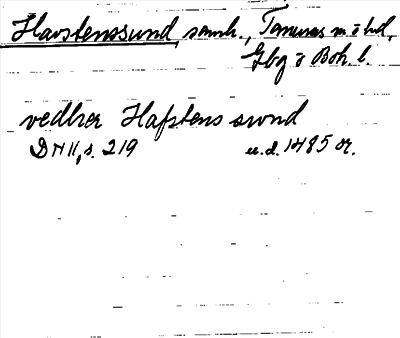 Havstenssund, samh., Tanums sn o hd,
Gbg o Boh. l.
vedher Hafstens swnd
DN II, s. 219 u.d. 1485 or.